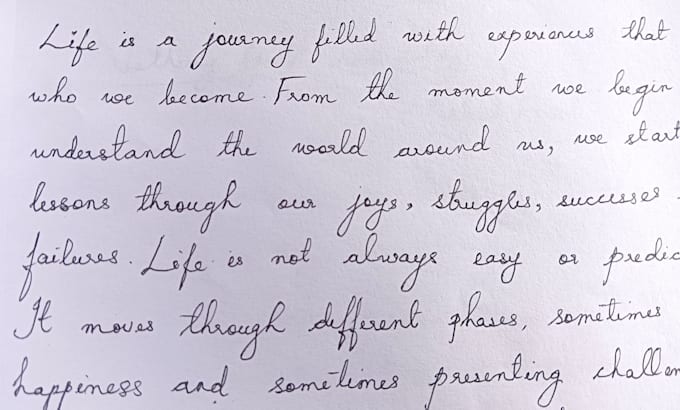 Life is a journey filled with experiences that
who we become. From the moment we begin
understand the world around us, we start
lessons through our joys, struggles, successes
failures. Life is not always easy or predic
It moves through different phases, sometimes
happiness and sometimes presenting challen